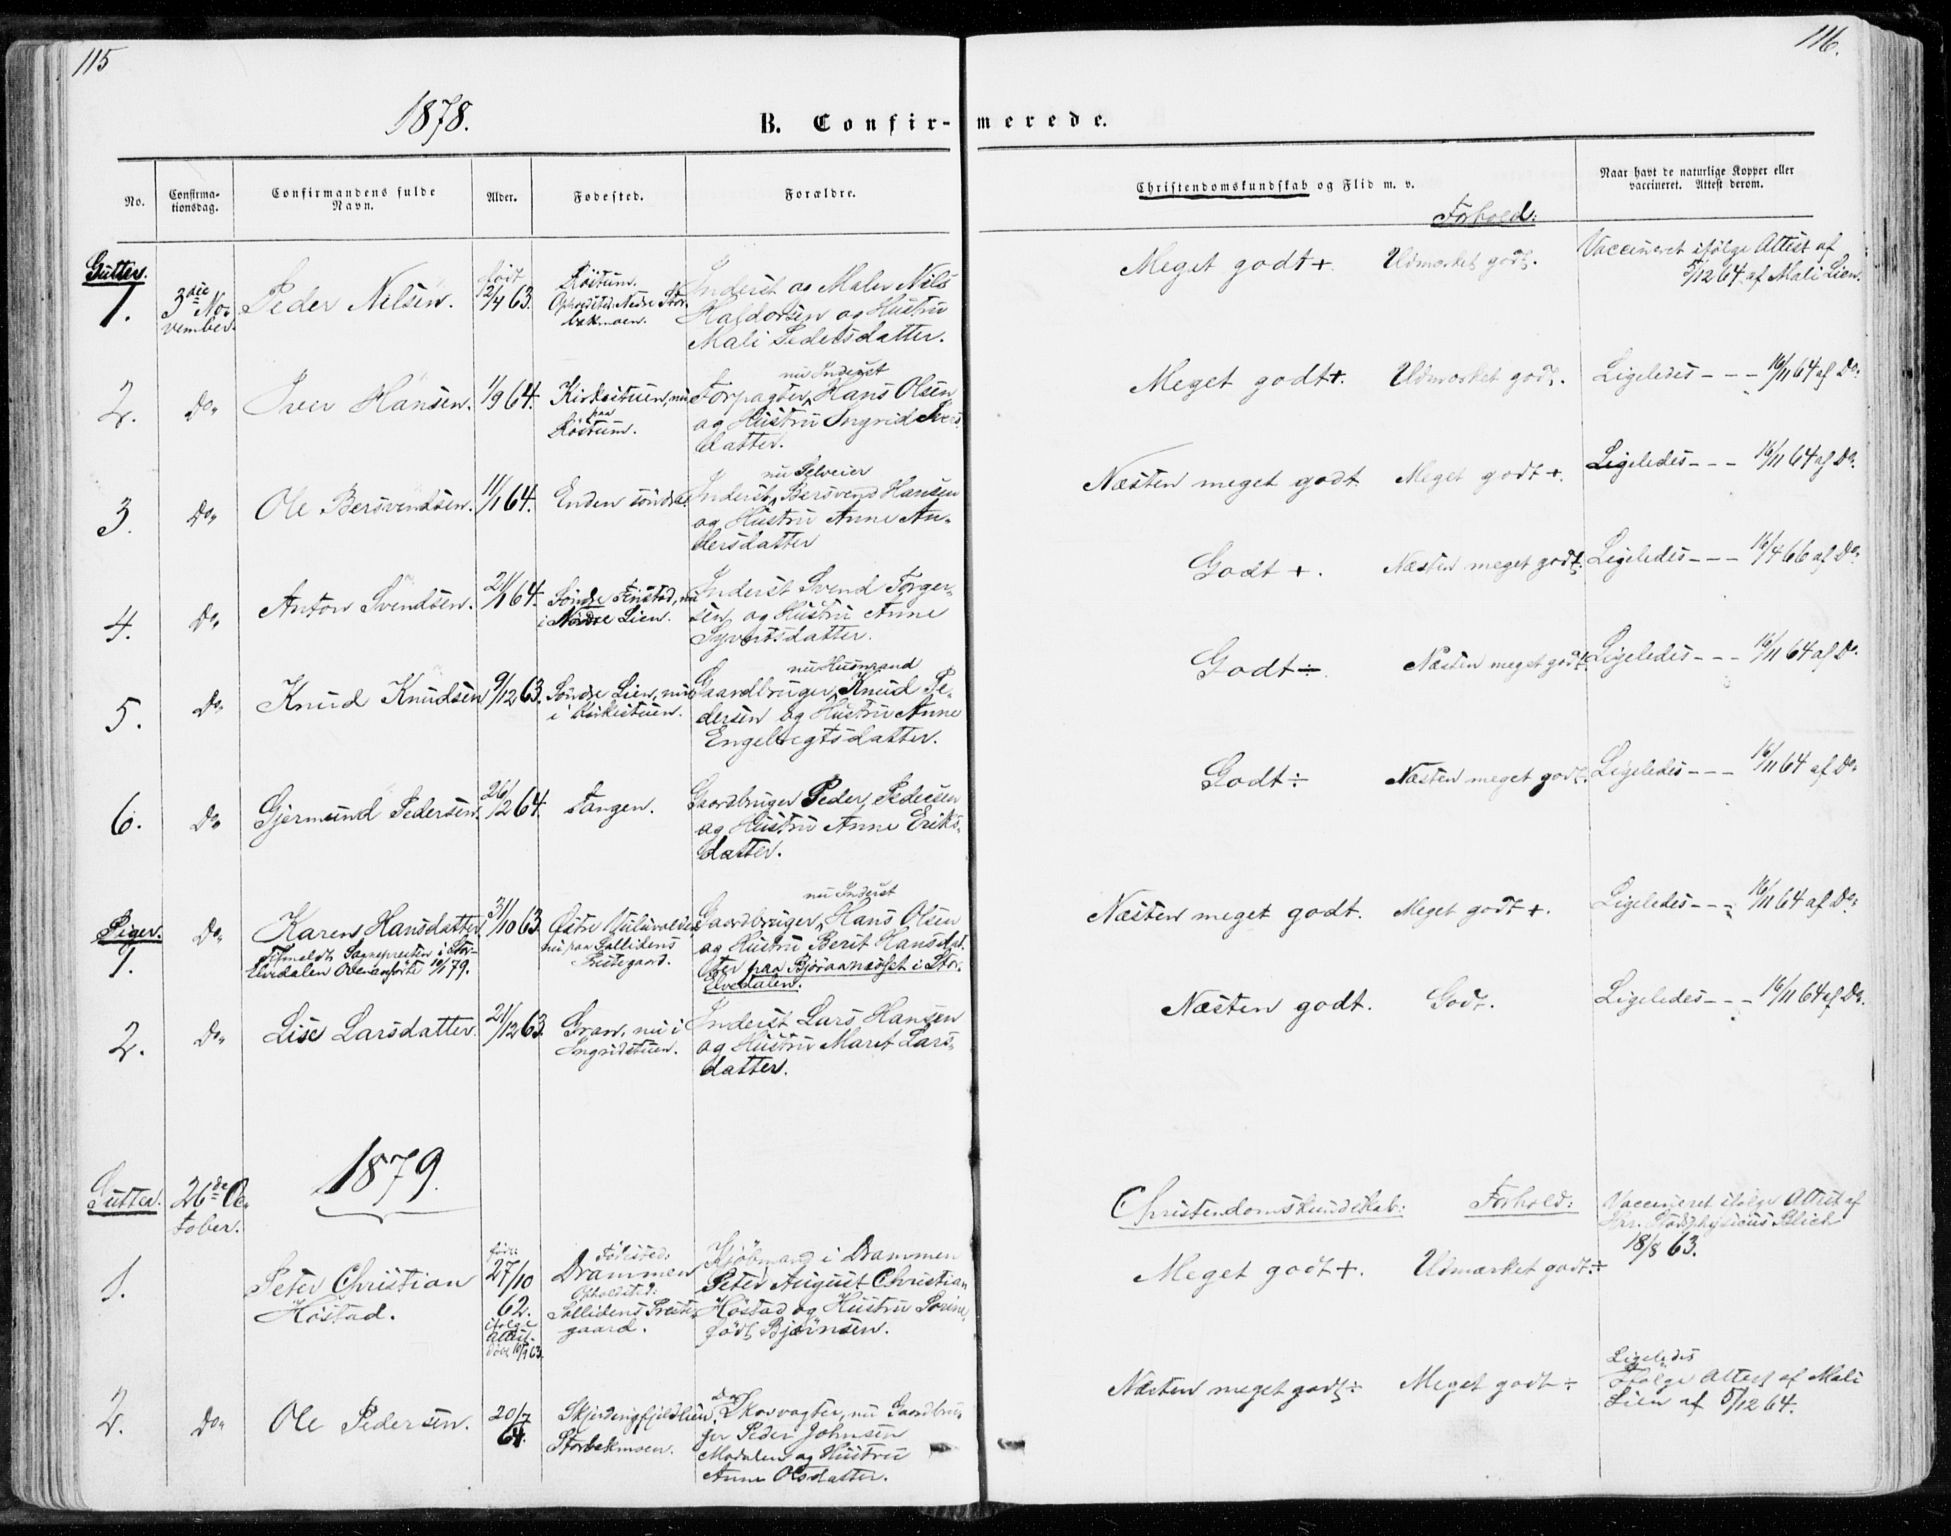 115
116.
1878.
B. Confirmerede.
No.
Confirmationsdag.
Confirmandens fulde Navn.
Alder.
Fødested.
Forældre.
Christendomskundskab og Flid m. v.
Forhold:
Naar havt de naturlige Kopper eller
vaccineret. Attest derom.
Gutter.
1.
3die No-
vember.
Peder Nilsen.
født
12/4 63.
Röstum.
Opholdsted: Nedre Stor-
bekmoen.
Inderst og Maler Nils
Haldorsen og Hustru
Mali Pedersdatter.
Meget godt +.
Udmærket godt.
Vaccineret ifølge Attest af
5/12 64. af Mali Lien.
2.
Do.
Iver Hansen.
1/9 64.
Kirkestuen, nu
paa
Röstum.
nu Inderst
Forpagter, Hans Olsen
og Hustru Ingrid Ivers-
datter.
Meget godt +.
Udmærket godt.
Ligeledes - - - 16/11 64 af Do.
3.
Do.
Ole Bersvendsen.
11/1 64.
Enden söndre.
nu Selveier
Inderst, Bersvend Hansen
og Hustru Anne An-
dersdatter
Næsten meget godt.
Meget godt +.
Ligeledes - - - 16/11 64 af Do.
4.
Do.
Anton Svendsen.
21/1 64.
Söndre Finstad, nu
i Nordre Lien.
Inderst Svend Torger-
sen og Hustru Anne
Syvertsdatter.
Godt +.
Næsten meget godt.
Ligeledes - - - 16/4 66 af Do.
5.
Do.
Knud Knudsen
9/12 63.
Söndre Lien, nu
i Kirkestuen.
nu Husmand
Gaardbruger, Knud Pe-
dersen og Hustru Anne
Engebregtsdatter.
Godt ÷.
Næsten meget godt.
Ligeledes - - - 16/11 64 af Do.
6.
Do.
Gjermund Pedersen.
26/12 64.
Tangen.
Gaardbruger Peder Pedersen
og Hustru Anne Eriks-
datter.
Godt ÷
Næsten meget godt.
Ligeledes - - - 16/11 64 af Do.
Piger.
1.
Do.
Karen Hansdatter
Tilmeldt Sognepresten i Stor-
Elvedalen 10/1 79.
31/10 63.
Östre
nu paa Sollidens
Prestegaard.
nu Inderst
Gaardbruger, Hans Olsen
og Hustru Berit Hansdat-
ter paa Björaanæsset i Stor-
Elvedalen.
Næsten meget godt.
Meget godt +.
Ligeledes - - - 16/11 64 af Do.
2.
Do.
Lise Larsdatter.
21/12 63.
Gran, nu i
Ingridstuen.
Inderst Lars Hansen
og Hustru Maret Lars-
datter.
Næsten godt.
Godt.
Ligeledes - - - 16/11 64 af Do.
1879.
Gutter.
26de Oc-
tober.
Christendomskundskab:
Forhold:
1.
Peter Christian
Höstad.
født
27/10
62.
ifølge
Attest
döbt 10/9 63.
Födested:
Drammen
Opholdsted:
Sollidens Preste-
gaard.
Kjöbmand i Drammen
Peter August Christian
Höstad og Hustru Sorine,
født Bjørnsen.
Meget godt +.
Udmærket godt ÷
Vaccineret ifølge Attest af
Hr. Stadsphysicus Blich
18/8 63.
2.
Do.
Ole Pedersen.
20/7
64.
Storbekmoen.
Skovvogter, nu Gaardbru-
ger Peder Johnsen
Modalen og Hustru
Anne Olsdatter.
Næsten meget godt ÷
Meget godt ÷
Ligeledes
Ifølge Attest af Mali
Lien af 5/12 64.